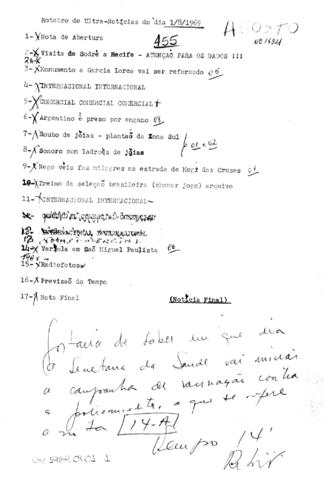 Roteiro de Ultra-Notícias do dia 1/8/1969
AGOSTO
1- Nota de Abertura
455
2- Visita de Sodré a Recife - ATENÇÃO PARA OS DADOS !!!
3- Monumento a Garcia Lorca vai ser reforçado 06
4- INTERNACIONAL INTERNACIONAL
5- COMERCIAL COMERCIAL COMERCIAL
6- Argentino é preso por engano
7- Roubo de jóias - plantão da Zona Sul
p 01 e 02
8- Sonoro com ladrões de jóias
9- Nego véio faz milagres na estrada de Mogi das Cruzes
10- Treino da seleção brasileira (chamar jogo) arquivo
11- INTERNACIONAL INTERNACIONAL
14- Varíola em São Miguel Paulista
15- Radiofotos
16- Previsão do Tempo
17- Nota Final (Notícia Final)
Gostaria de saber em que dia
a Secretaria da Saúde vai iniciar
a campanha de vacinação contra
a poliomielite, a que se refere
a nota 14-A
Tempo 14'